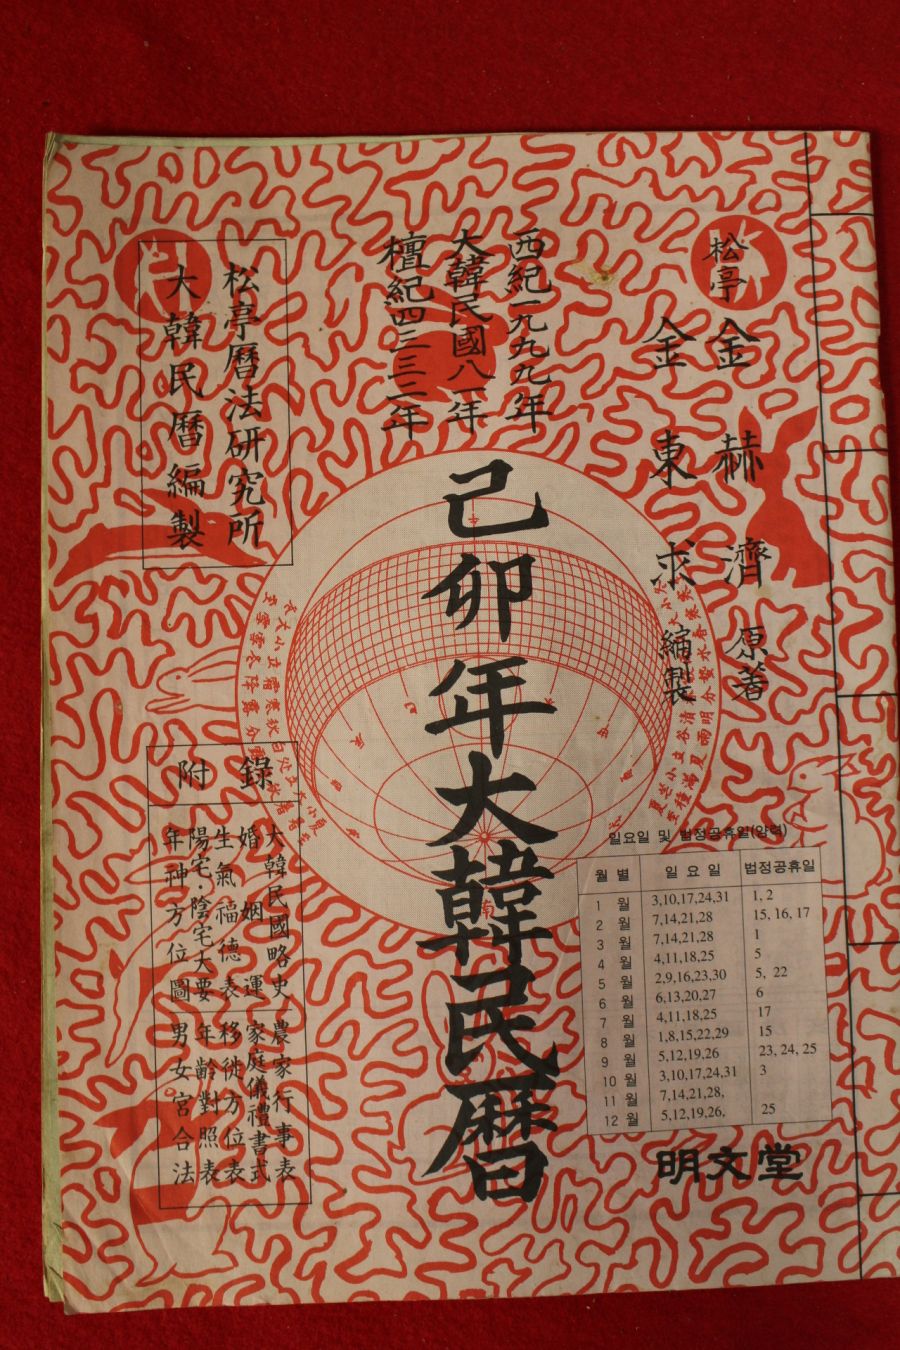 松亭 金赫濟 原著
金東求 編製
西紀一九九九年
大韓民國八一年
檀紀四三三二年
松亭曆法研究所
大韓民曆編製
己卯年大韓民曆
附錄
大韓民國略史
婚姻運
生氣福德表
陽宅·陰宅大要
年神方位圖
農家行事表
家庭儀禮書式
移徙方位表
年齡對照表
男女宮合法
일요일 및 법정공휴일(양력)
월 별 일 요 일 법정공휴일
1 월 3,10,17,24,31 1, 2
2 월 7,14,21,28 15, 16, 17
3 월 7,14,21,28 1
4 월 4,11,18,25 5
5 월 2,9,16,23,30 5, 22
6 월 6,13,20,27 6
7 월 4,11,18,25 17
8 월 1,8,15,22,29 15
9 월 5,12,19,26 23, 24, 25
10 월 3,10,17,24,31 3
11 월 7,14,21,28,
12 월 5,12,19,26, 25
明文堂